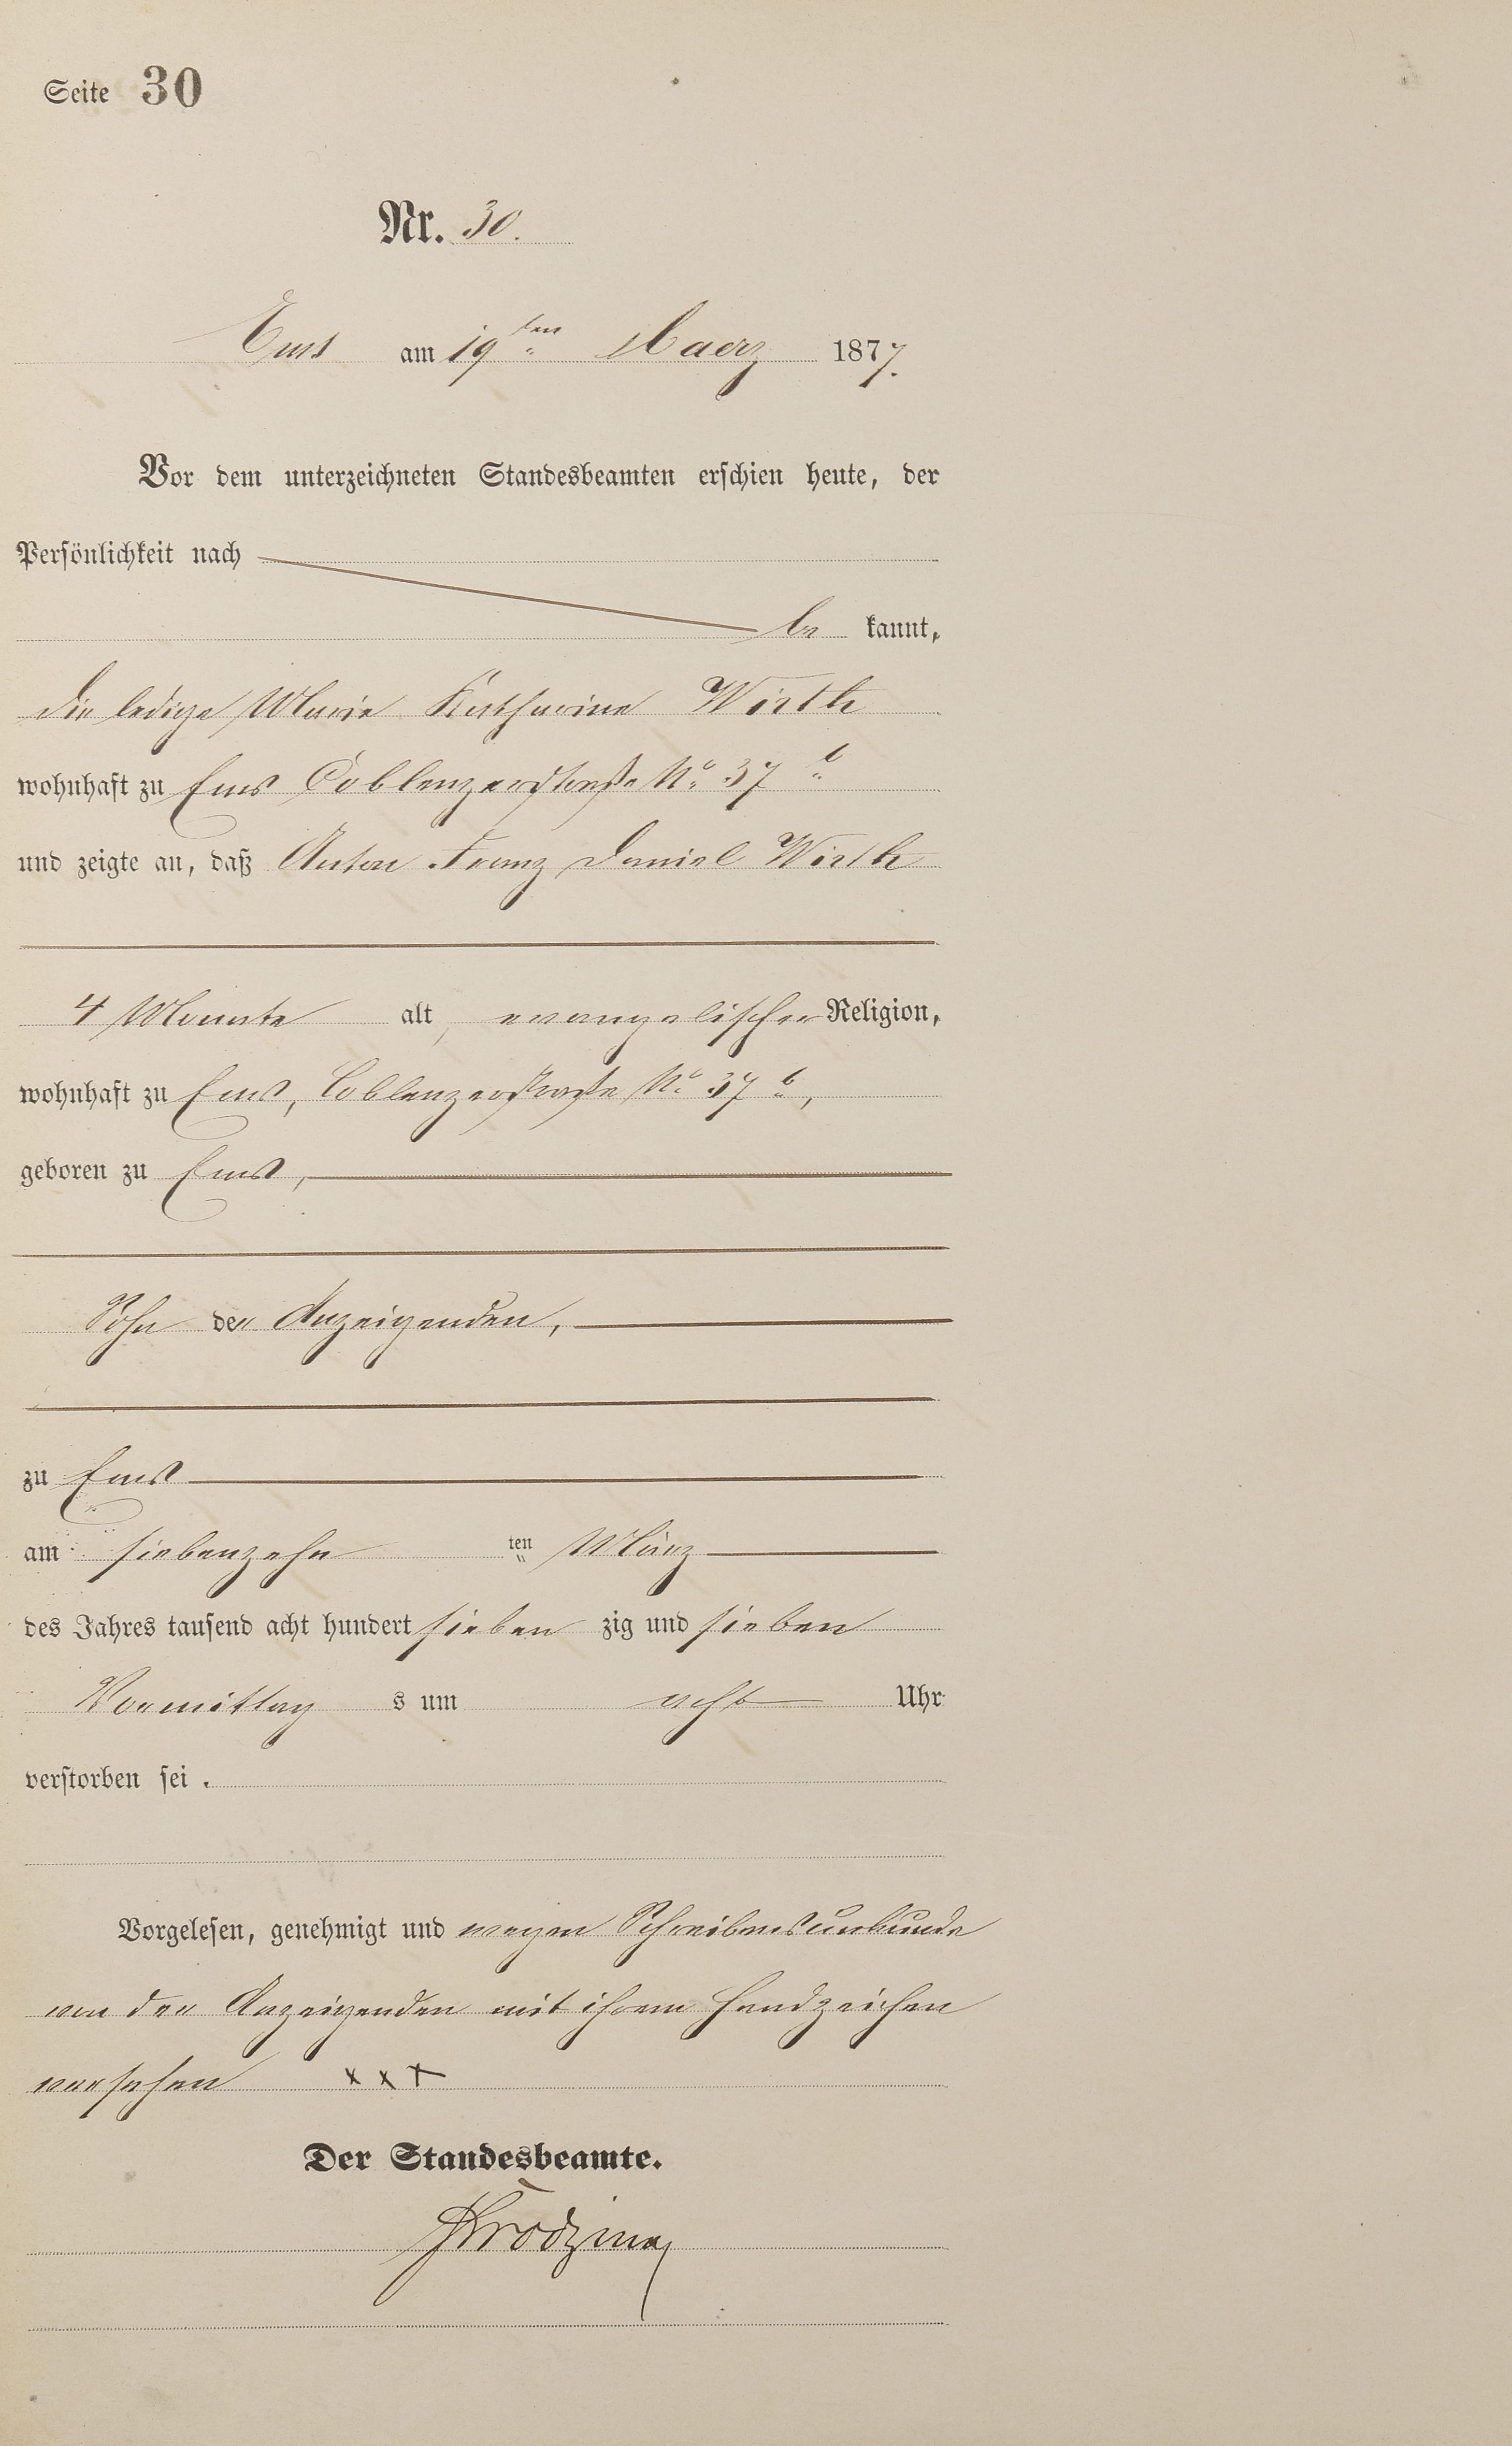 Seite 30
Nr. 30.
Ems am 19ten Maerz 1877.
Vor dem unterzeichneten Standesbeamten erschien heute, der
Persönlichkeit nach
be kannt,
die ledige Marie Katharine Wirth
wohnhaft zu Ems Coblenzerstraße No 37 b
und zeigte an, daß Anton Franz Daniel Wirth
4 Monate alt, evangelischer Religion,
wohnhaft zu Ems, Coblenzerstraße No 37 b,
geboren zu Ems,
Sohn der Anzeigenden,
zu Ems
am siebenzehn ten März
des Jahres tausend acht hundert sieben zig und sieben
Vormittag s um acht Uhr
verstorben sei.
Vorgelesen, genehmigt und wegen Schreibensunkunde
von der Anzeigenden mit ihrem Handzeichen
versehen x x x
Der Standesbeamte.